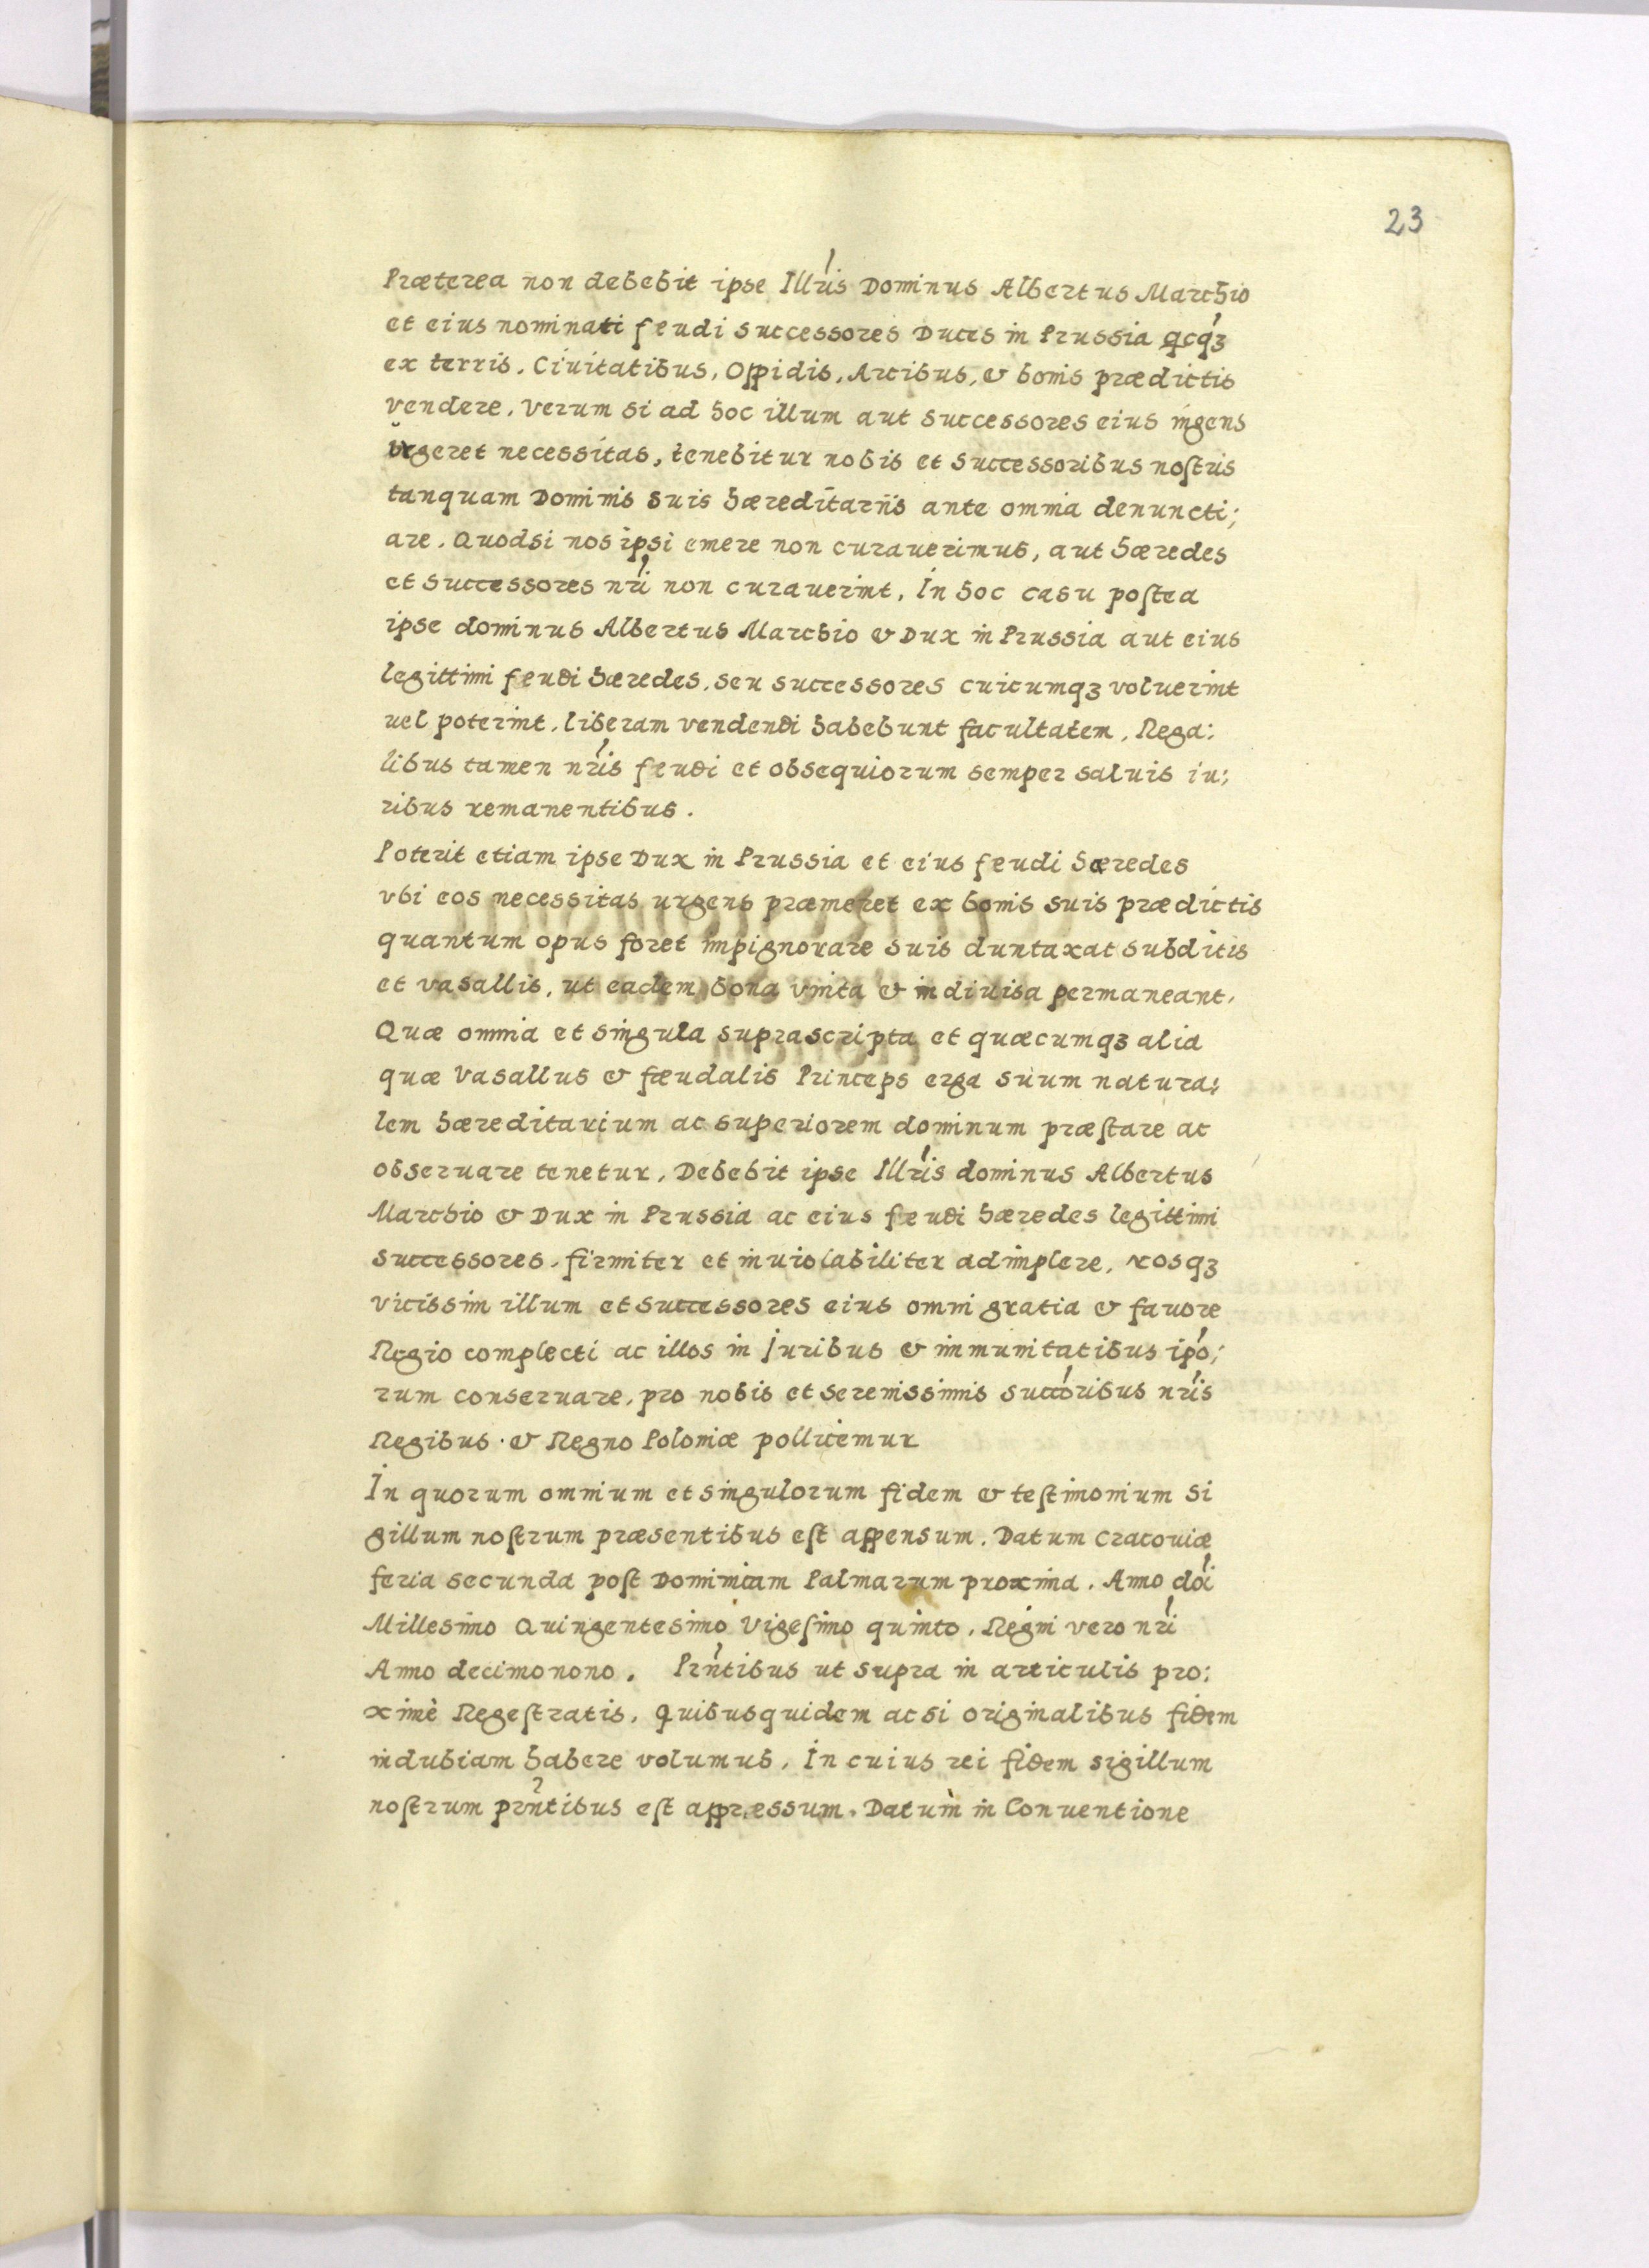 23
Præterea non debebit ipse Illris Dominus Albertus Marchio
et eius nominati feudi successores Duces in Prussia qcqꝫ
ex terris, Ciuitatibus, Oppidis, Arcibus, & bonis prædictis
vendere, verum si ad hoc illum aut successores eius ingens
vrgeret necessitas, tenebitur nobis et successoribus nostris
tanquam Dominis suis hæreditariis ante omnia denuncti;
are. Quodsi nos ipsi emere non curauerimus, aut hæredes
et successores nri non curauerint, In hoc casu postea
ipse dominus Albertus Marchio & Dux in Prussia aut eius
legittimi feudi hæredes, seu successores cuicumqꝫ voluerint
uel poterint, liberam vendendi habebunt facultatem, Rega:
libus tamen nris feudi et obsequiorum semper saluis iu;
ribus remanentibus.
Poterit etiam ipse Dux in Prussia et eius feudi hæredes
vbi eos necessitas urgens præmeret ex bonis suis prædictis
quantum opus foret impignorare suis duntaxat subditis
et vasallis, ut eadem bona vnita & indiuisa permaneant,
Quæ omnia et singula suprascripta et quæcumqꝫ alia
quæ Vasallus & fæudalis Princeps erga suum natura;
lem hæreditarium ac superiorem dominum præstare ac
obseruare tenetur, Debebit ipse Illris dominus Albertus
Marchio & Dux in Prussia ac eius feudi hæredes legittimi
successores, firmiter et inuiolabiliter adimplere, Nosqꝫ
vicissim illum et successores eius omni gratia & fauore
Regio complecti ac illos in juribus & immunitatibus ipo;
rum conseruare, pro nobis et serenissimis succoribus nris
Regibus & Regno Poloniæ pollicemur
In quorum omnium et singulorum fidem & testimonium si
gillum nostrum præsentibus est appensum. Datum Cracouiæ
feria secunda post Dominicam Palmarum proxima. Anno doi
Millesimo Quingentesimo Vigesimo quinto, Regni vero nri
Anno decimonono. Prntibus ut supra in articulis pro:
ximè Regestratis, Quibusquidem acsi originalibus fidem
indubiam habere volumus, In cuius rei fidem sigillum
nostrum prntibus est appræssum. Datum in Conuentione